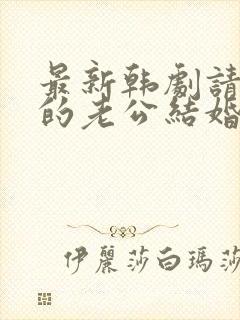 最新韩劇請
的老公結婚
伊麗莎白瑪莎